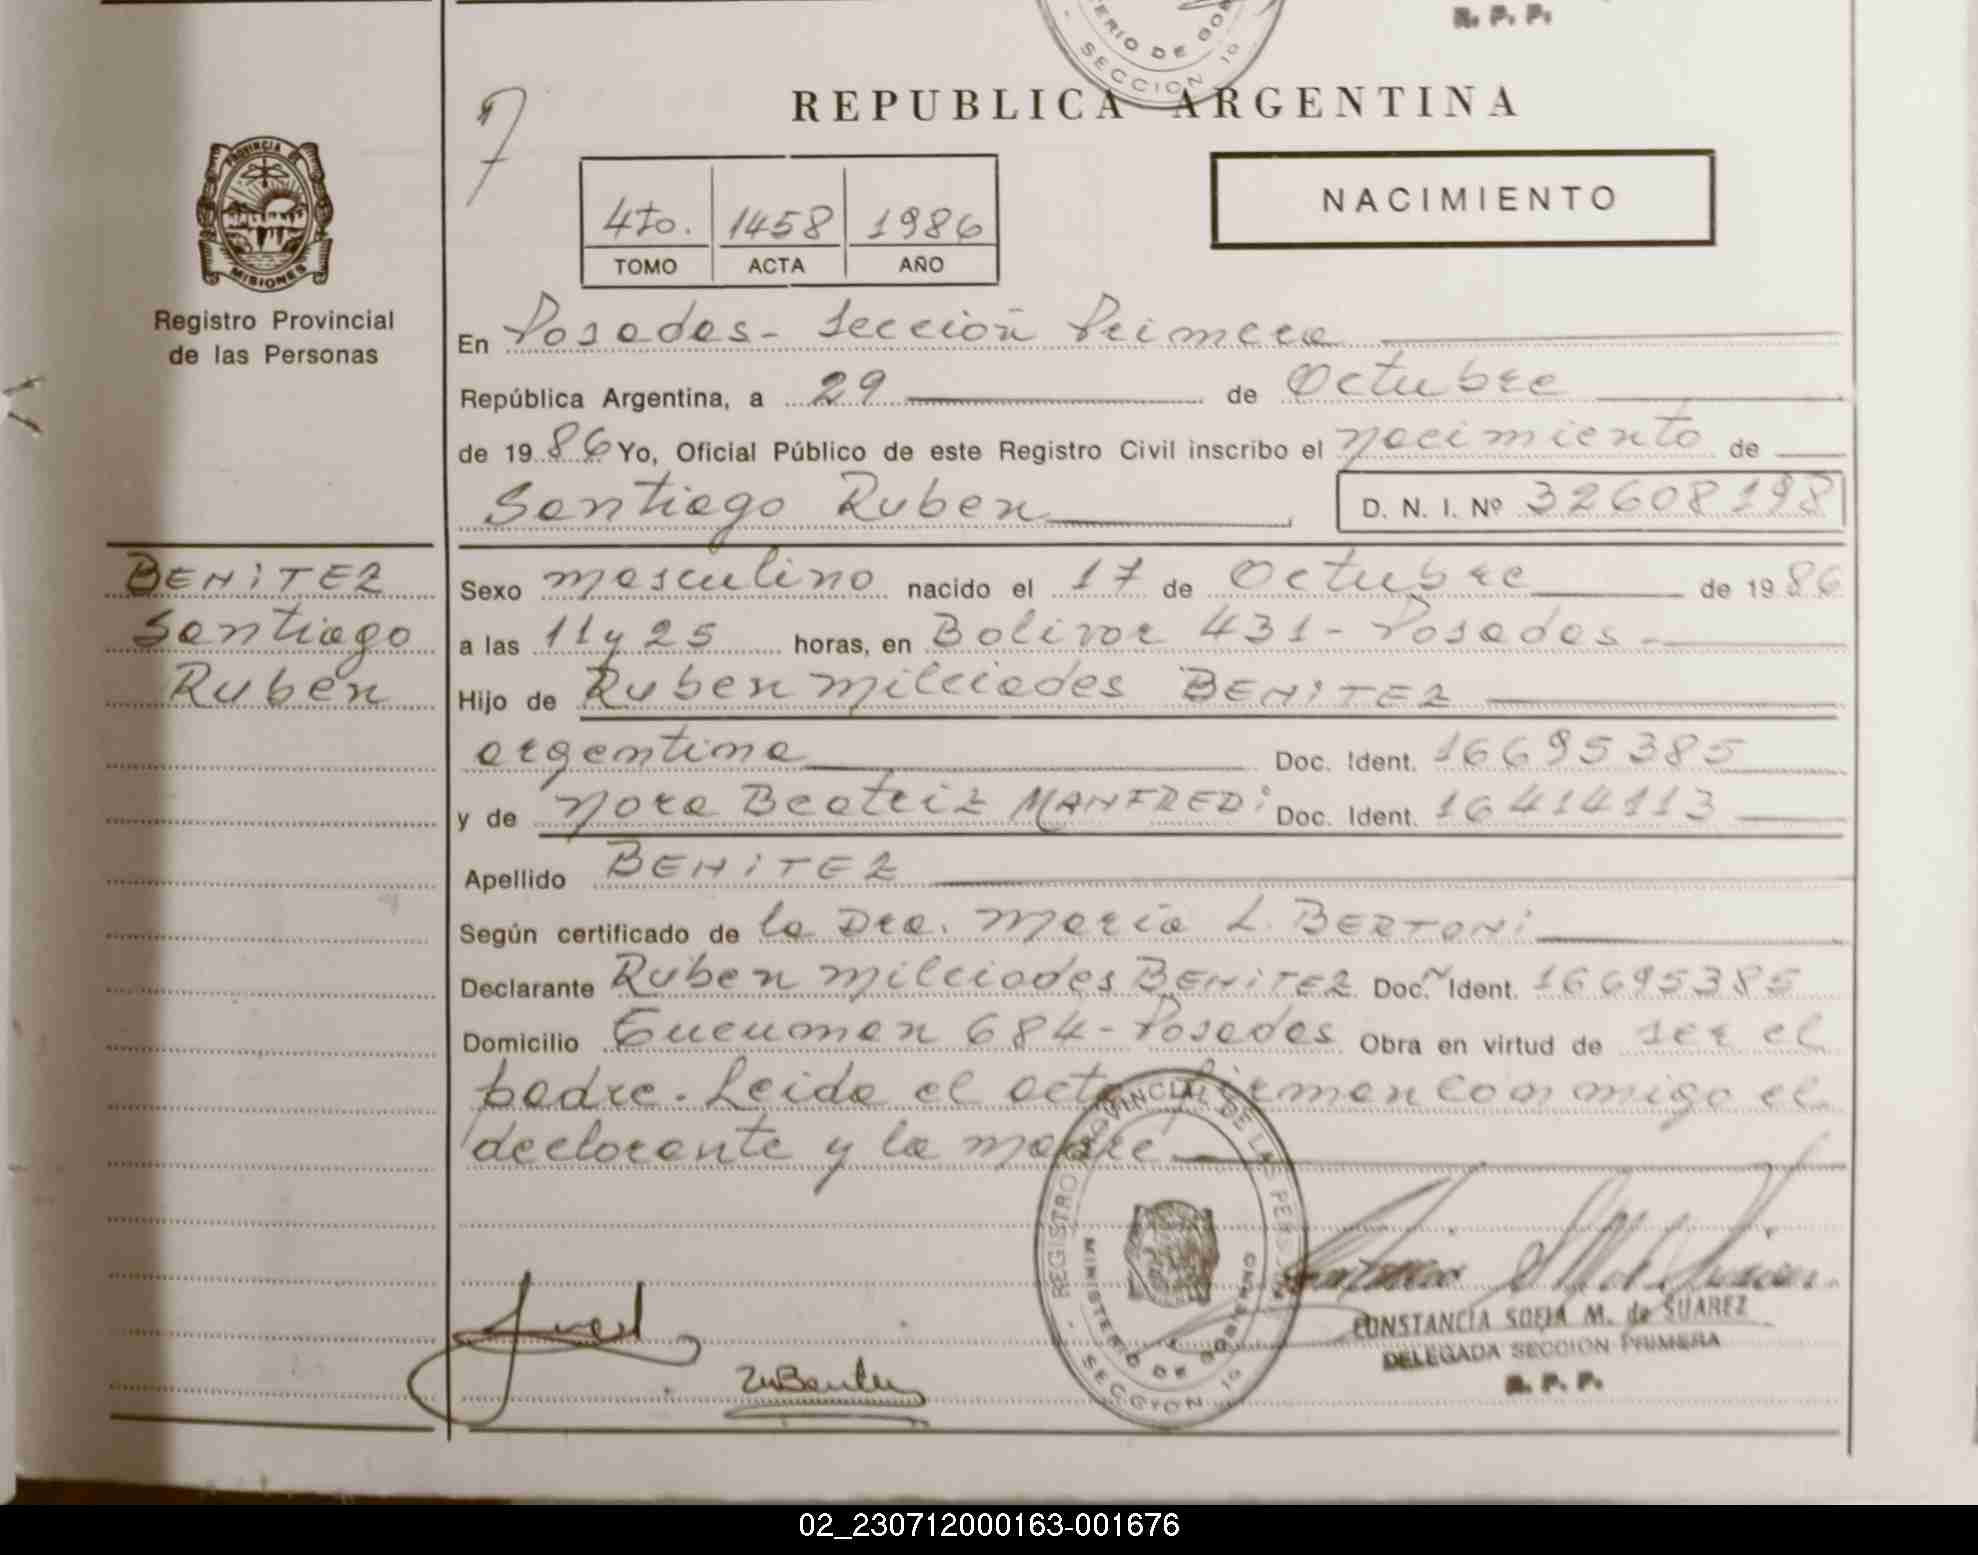 R. P. P.
ERIO DE GOB
SECCION 1º
REPUBLICA ARGENTINA
PROVINCIA DE
MISIONES
Registro Provincial
de las Personas
NACIMIENTO
4to. 1458 1986
TOMO ACTA AÑO
En Posadas - Sección Primera
República Argentina, a 29 de Octubre
de 1986 Yo, Oficial Público de este Registro Civil inscribo el nacimiento de
Santiago Ruben D. N. I. Nº 32608198
BENITEZ
Santiago
Ruben
Sexo masculino nacido el 17 de Octubre de 1986
a las 11 y 25 horas, en Bolivar 431 - Posadas -
Hijo de Ruben Milciades BENITEZ
argentina Doc. Ident. 16695385
y de Nora Beatriz MANFREDi Doc. Ident. 16414113
Apellido BENITEZ
Según certificado de la Dra. Maria L. BERTONi
Declarante Ruben Milciades BENITEZ Doc. Ident. 16695385
Domicilio Tucuman 684 - Posadas Obra en virtud de ser el
padre. Leida el acta, firman conmigo el
declarante y la madre
REGISTRO PROVINCIAL DE LAS PERSONAS
MINISTERIO DE GOBIERNO
SECCION 1º
CONSTANCIA SOFIA M. de SUAREZ
DELEGADA SECCION PRIMERA
R. P. P.
02_230712000163-001676